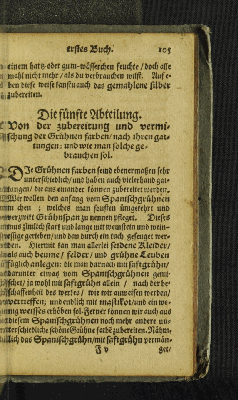 erstes Buch. 105
einem hartz-oder gum-wässerchen feuchte / doch alle
mahl nicht mehr / als du verbrauchen wilst. Auf e-
ben diese weise kanstu auch das gemahlene silber
zubereiten.
Die fünfte Abteilung.
Von der zubereitung und vermi-
schung der Grühnen farben / nach ihren gat-
tungen: und wie man solche ge-
brauchen sol.
DIe Grühnen farben seind ebenermaßen sehr
unterschiedlich / und haben auch vielerhand gat-
tungen / die aus einander können zubereitet werden.
Wir wollen den anfang vom Spanischgrühnen
machen ; welches man sonsten ungerieben und
vor zweit Grühnspan zu nennen pfleget. Dieses
mus zimlich stark und lange mit weinstein und wein-
essige gerieben / und dan durch ein tuch gefeuget wer-
den. Hiermit kan man allerlei seidene Kleider /
als auch beume / felder / und grühne Leuben
füglich anlegen: die man darnach mit saftgrühn /
darunter etwas vom Spanischgrühnen gemi-
schet / ja wohl mit saftgrühn allein / nach der be-
schaffenheit des wercks / wie wir anweisen werden /
vertreffen; und endlich mit mastikot / und ein we-
nig weisses erhöben sol. Ferner können wir auch aus
diesem Spanischgrühnen noch mehr andere un-
terschiedliche schöne Grühne farbe zubereiten. Nähm-
lich das Spanischgrühn / mit saftgrühn vermän-
J v get /